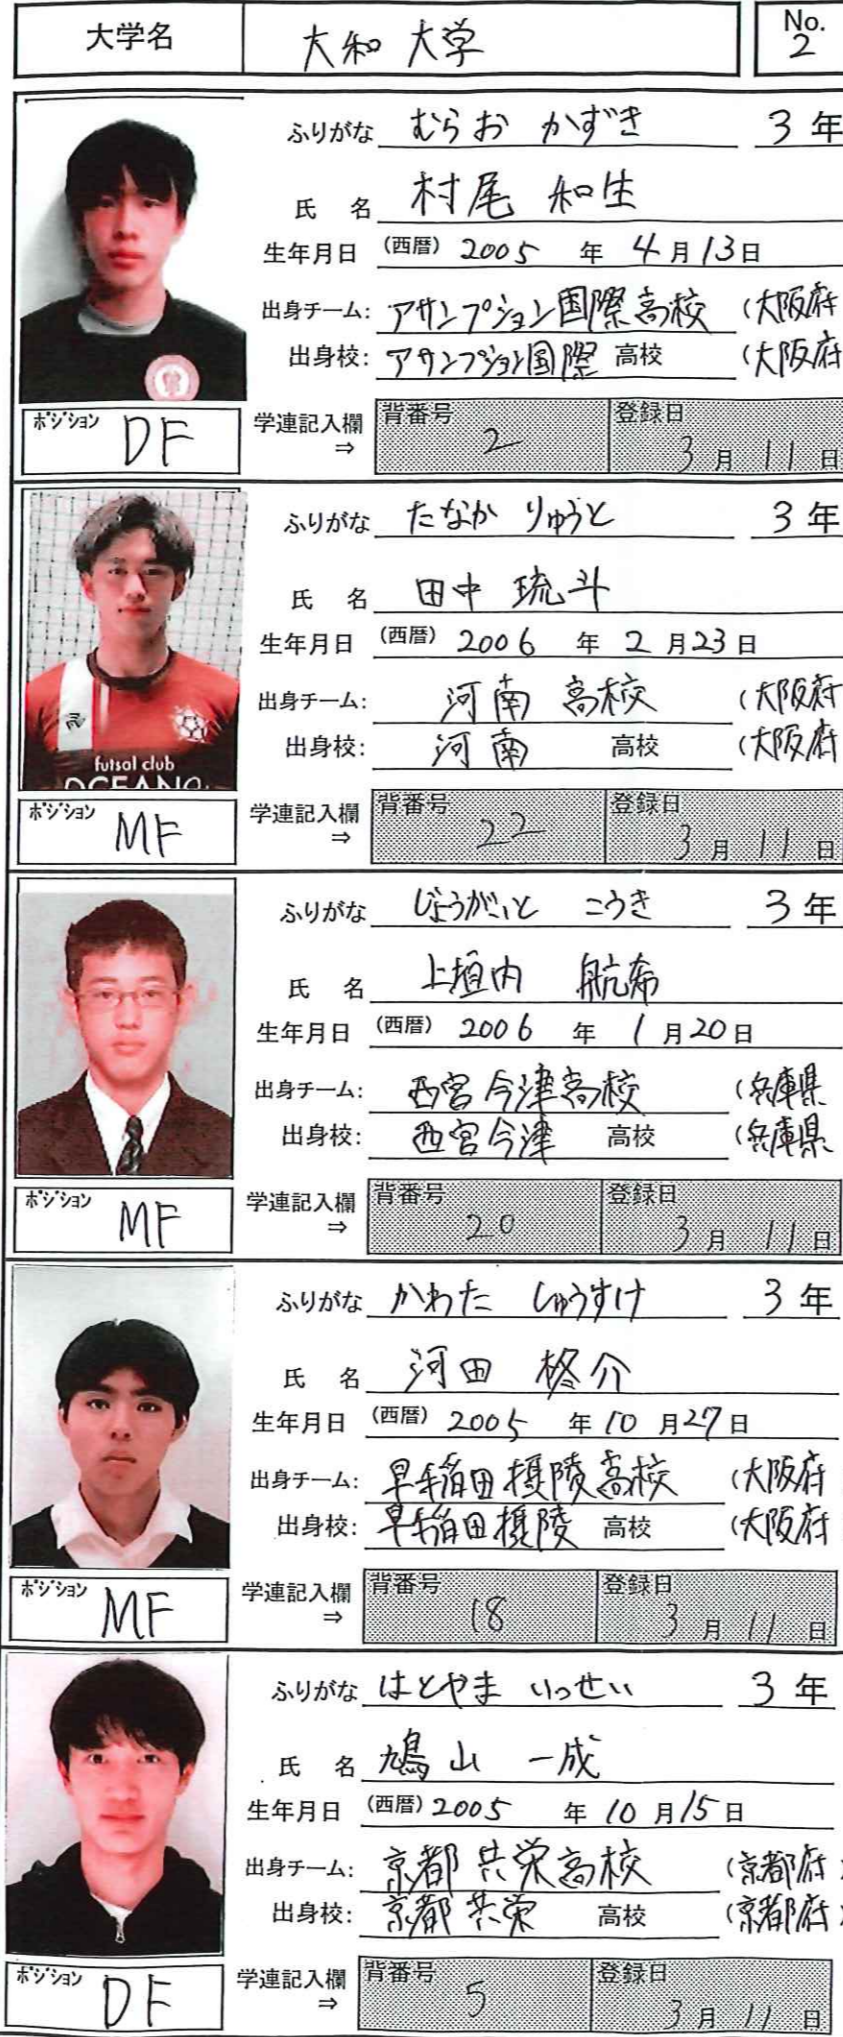 大学名 大和 大学 No. 2
ふりがな むらお かずき 3 年
氏 名 村尾 和生
生年月日 (西暦) 2005 年 4 月 13 日
出身チーム: アサンプション国際高校 (大阪府
出身校: アサンプション国際 高校 (大阪府
ポジション DF 学連記入欄 ⇒ 背番号 2 登録日 3 月 11 日
ふりがな たなか りゅうと 3 年
氏 名 田中 琉斗
生年月日 (西暦) 2006 年 2 月 23 日
出身チーム: 河南 高校 (大阪府
出身校: 河南 高校 (大阪府
futsal club
OCEANO
ポジション MF 学連記入欄 ⇒ 背番号 22 登録日 3 月 11 日
ふりがな じょうがいと こうき 3 年
氏 名 上垣内 航希
生年月日 (西暦) 2006 年 1 月 20 日
出身チーム: 西宮今津高校 (兵庫県
出身校: 西宮今津 高校 (兵庫県
ポジション MF 学連記入欄 ⇒ 背番号 20 登録日 3 月 11 日
ふりがな かわた しゅうすけ 3 年
氏 名 河田 柊介
生年月日 (西暦) 2005 年 10 月 27 日
出身チーム: 早稲田摂陵高校 (大阪府
出身校: 早稲田摂陵 高校 (大阪府
ポジション MF 学連記入欄 ⇒ 背番号 18 登録日 3 月 11 日
ふりがな はとやま いっせい 3 年
氏 名 鳩山 一成
生年月日 (西暦) 2005 年 10 月 15 日
出身チーム: 京都共栄高校 (京都府
出身校: 京都共栄 高校 (京都府
ポジション DF 学連記入欄 ⇒ 背番号 5 登録日 3 月 11 日